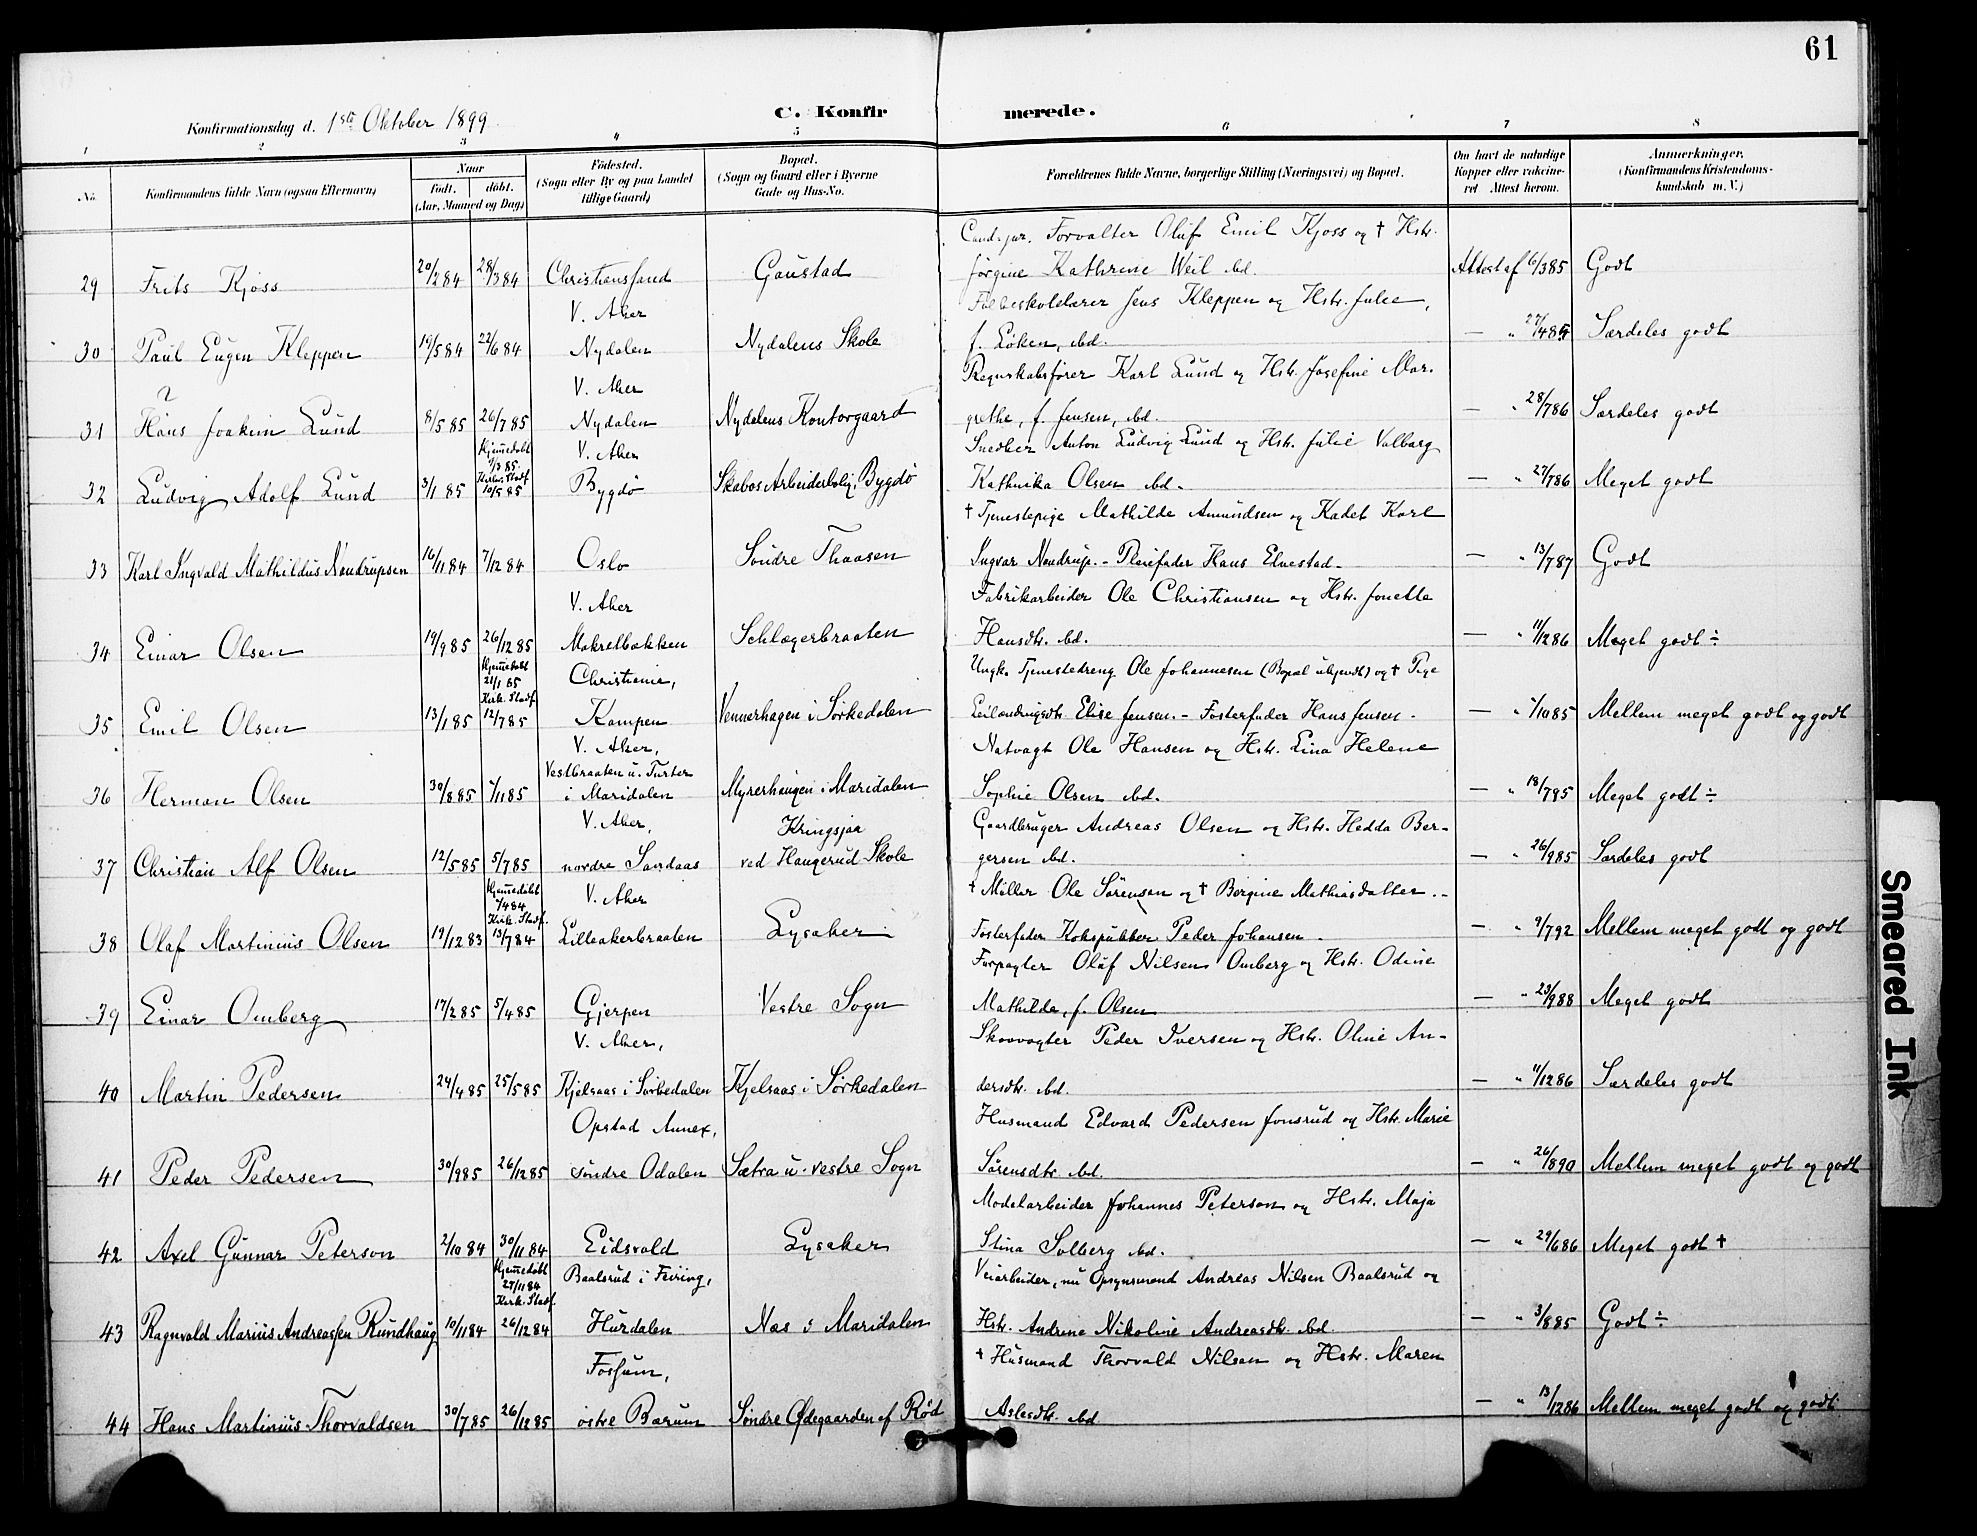 61
Konfirmationsdag d. 1ste Oktober 1899
C. Konfirmerede.
1 2 3 4 5 6 7 8
No.
Konfirmandens fulde Navn (ogsaa Efternavn)
Naar
født. døbt.
(Aar, Maaned og Dag)
Fødested.
(Sogn eller By og paa Landet
tillige Gaard)
Bopæl.
(Sogn og Gaard eller i Byerne
Gade og Hus-No.
Forældrenes fulde Navne, borgerlige Stilling (Næringsvei) og Bopæl.
Om havt de naturlige
Kopper eller vaksine-
ret Attest herom.
Anmærkninger.
(Konfirmandens Kristendoms-
kundskab m. V.)
Cand. jur. Forvalter Oluf Emil Kjøss og † Hstr.
29 Frits Kjøss 20/2 84 28/3 84 Christianssand Gaustad Jørgine Kathrine Weil ibd. Attest af 16/3 85 Godt
V. Aker Folkeskolelærer Jens Kleppen og Hstr. Julie,
30 Paul Eugen Kleppen 19/5 84 22/6 84 Nydalen Nydalens Skole f. Løken, ibd. — " 27/4 85 Særdeles godt
V. Aker Regnskabsfører Karl Lund og Hstr. Josefine Mar-
31 Hans Joakim Lund 8/5 85 26/7 85 Nydalen Nydalens Kontorgaard grethe, f. Jensen, ibd. — " 28/7 86 Særdeles godt
Hjemedøbt V. Aker Snedker Anton Ludvig Lund og Hstr. Julie Valborg
9/3 85.
Kirkl. Stadf.
32 Ludvig Adolf Lund 3/1 85 10/5 85 Bygdø Skabos Arbeiderbolig, Bygdø Kathinka Olsen ibd. — " 27/7 86 Meget godt
† Tjenestepige Mathilde Amundsen og Kadet Karl
33 Karl Ingvald Mathildus Nandrupsen 16/11 84 7/12 84 Oslo Søndre Thaasen Ingvar Nandrup. - Pleiefader Hans Elvestad - — " 13/7 87 Godt
V. Aker Fabrikarbeider Ole Christiansen og Hstr. Jonette
34 Einar Olsen 19/9 85 26/12 85 Makrelbækken Schlægerbraaten Hansdtr. ibd. — " 11/12 86 Meget godt ÷
Hjemedøbt Christiania, Ungk. Tjenestedreng Ole Johannesen (Bopæl ubekjendt) og † Pige
21/1 85
Kirk. Stadf.
35 Emil Olsen 13/1 85 12/7 85 Kampen Vennerhagen i Sørkedalen Elise Jensen. - Fosterfader Hans Jensen. — " /10 85 Mellem meget godt og godt
V. Aker, Natvagt Ole Hansen og Hstr. Lina Helene
Vestbraaten u. Turter
36 Herman Olsen 30/8 85 /11 85 i Maridalen Myrerhaugen i Maridalen Sophie Olsen ibd. — " 18/7 95 Meget godt ÷
V. Aker, Kringsjaa Gaardbruger Andreas Olsen og Hstr. Hedda Ber-
37 Christian Alf Olsen 12/5 85 5/7 85 nordre Sandaas ved Haugerud Skole gersen ibd. — " 26/9 85 Særdeles godt
Hjemedøbt V. Aker † Møller Ole Sørensen og † Bergine Mathiasdatter. -
/4 84
Kirk. Stadf.
38 Olaf Martinius Olsen 19/12 83 13/7 84 Lilleakerbraaten Lysaker Fosterfader Kokspukker Peder Johansen - — " 9/7 92 Mellem meget godt og godt
Forpagter Oluf Nilsen Omberg og Hstr. Odine
39 Einar Omberg 17/2 85 5/4 85 Gjerpen Vestre Sogn Mathilde, f. Olsen — " 23/9 88 Meget godt
V. Aker, Skovvogter Peder Iversen og Hstr. Oline An-
40 Martin Pedersen 24/4 85 25/5 85 Kjelsaas i Sørkedalen Kjelsaas i Sørkedalen dersdtr. ibd. — " 11/12 86 Særdeles godt
Opstad Annex, Husmand Edvard Pedersen Jonsrud og Hstr. Marie
41 Peder Pedersen 30/9 85 26/12 85 søndre Odalen Sætra u. vestre Sogn Sørensdtr. ibd. — " 26/8 90 Mellem meget godt og godt
Modelarbeider Johannes Peterson og Hstr. Maja
42 Axel Gunnar Peterson 2/10 84 30/11 84 Eidsvold Lysaker Stina Solberg ibd. — " 29/6 86 Meget godt +
Hjemedøbt Baalsrud i Feiring, Veiarbeider, nu Opsynsmand Andreas Nilsen Baalsrud og
27/11 84
Kirk. Stadf.
43 Ragnvald Marius Andreassen Rundhaug 10/11 84 26/12 84 Hurdalen Næs i Maridalen Hstr. Andrine Nikoline Andreasdtr. ibd. — " 3/8 85 Godt ÷
Fossum, † Husmand Thorvald Nilsen og Hstr. Maren
44 Hans Martinius Thorvaldsen 30/7 85 26/12 85 østre Bærum Søndre Ødegaarden af Rød Aslesdtr. ibd — " 13/12 86 Mellem meget godt og godt
Smeared Ink